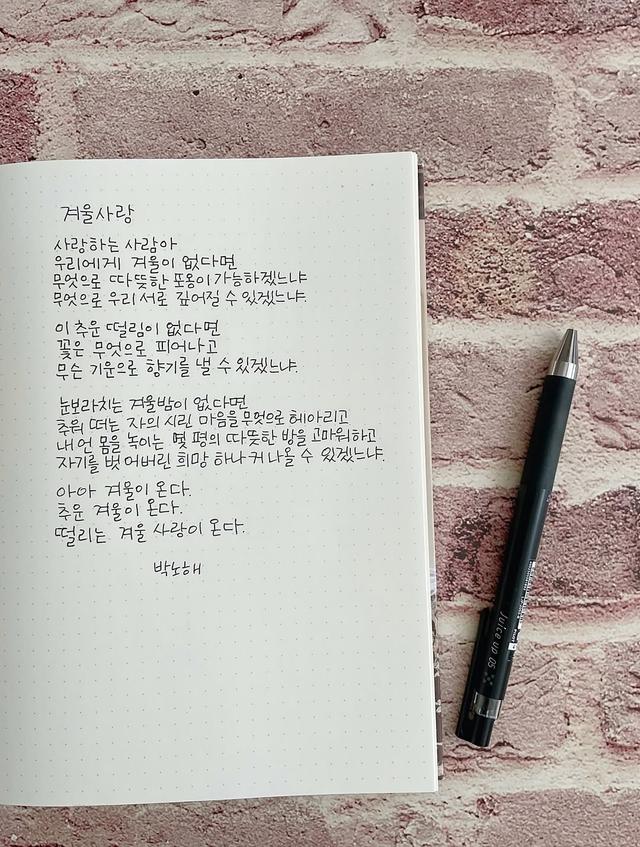 겨울사랑
사랑하는 사람아
우리에게 겨울이 없다면
무엇으로 따뜻한 포옹이 가능하겠느냐
무엇으로 우리 서로 깊어질 수 있겠느냐
이 추운 떨림이 없다면
꽃은 무엇으로 피어나고
무슨 기운으로 향기를 낼 수 있겠느냐
눈보라치는 겨울밤이 없다면
추워 떠는 자의 시린 마음을 무엇으로 헤아리고
내 언 몸을 녹이는 몇 평의 따뜻한 방을 고마워하고
자기를 벗어버린 희망 하나 커나올 수 있겠느냐
아아 겨울이 온다.
추운 겨울이 온다.
떨리는 겨울 사랑이 온다.
박노해
Juice up 05